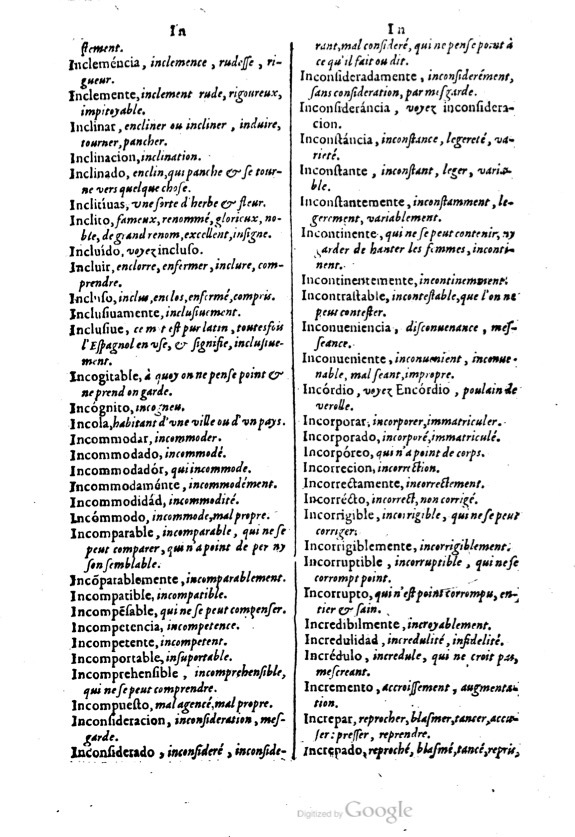 In
ſtement.
Incleméncia, inclemence, rudeſſe, ri-
gueur.
Inclemente, inclement rude, rigoureux,
impitoyable.
Inclinar, encliner ou incliner, induire,
tourner, pancher.
Inclinacion, inclination.
Inclinado, enclin, qui panche & ſe tour-
ne vers quelque choſe.
Inclitiuas, vne ſorte d'herbe & fleur.
Inclito, fameux, renommé, glorieux, no-
ble, de grand renom, excellent, inſigne.
Incluído, voyez incluſo.
Incluir, enclorre, enfermer, inclure, com-
prendre.
Incluſo, inclus, enclos, enfermé, compris.
Incluſiuamente, incluſiuement.
Incluſiue, ce mot eſt pur latin, toutesfois
l'Eſpagnol en vſe, & ſignifie, incluſiue-
ment.
Incogitable, à quoy on ne penſe point &
ne prend on garde.
Incógnito, incogneu.
Incola, habitant d'vne ville ou d'vn pays.
Incommodar, incommoder.
Incommodado, incommodé.
Incommodadór, qui incommode.
Incommodaménte, incommodément.
Incommodidád, incommodité.
Incómmodo, incommode, mal propre.
Incomparable, incomparable, qui ne ſe
peut comparer, qui n'a point de per ny
ſon ſemblable.
Incõparablemente, incomparablement.
Incompatible, incompatible.
Incompẽſable, qui ne ſe peut compenſer.
Incompetencia, incompetence.
Incompetente, incompetent.
Incomportable, inſuportable.
Incomprehenſible, incomprehenſible,
qui ne ſe peut comprendre.
Incompueſto, mal agencé, mal propre.
Inconſideracion, inconſideration, meſ-
garde.
Inconſiderado, inconſideré, inconſide-
In
rant, mal conſideré, qui ne penſe point à
ce qu'il fait ou dit.
Inconſideradamente, inconſiderément,
ſans conſideration, par meſgarde.
Inconſideráncia, voyez inconſidera-
cion.
Inconſtáncia, inconſtance, legereté, va-
rieté.
Inconſtante, inconſtant, leger, varia-
ble.
Inconſtantemente, inconſtamment, le-
gerement, variablement.
Incontinente, qui ne ſe peut contenir, ny
garder de hanter les femmes, inconti-
nent.
Incontinentemente, incontinemment.
Incontraſtable, inconteſtable, que l'on ne
peut conteſter.
Inconueniencia, diſconuenance, meſ-
ſeance.
Inconueniente, inconuenient, inconue-
nable, mal ſeant, impropre.
Incórdio, voyez Encórdio, poulain de
verolle.
Incorporar, incorporer, immatriculer.
Incorporado, incorporé, immatriculé.
Incorpóreo, qui n'a point de corps.
Incorrecion, incorrection.
Incorrectamente, incorrectement.
Incorrécto, incorrect, non corrigé.
Incorrigible, incorrigible, qui ne ſe peut
corriger.
Incorrigiblemente, incorrigiblement.
Incorruptible, incorruptible, qui ne ſe
corrompt point.
Incorrupto, qui n'eſt point corrompu, en-
tier & ſain.
Incredibilmente, incroyablement.
Incredulidad, incredulité, infidelité.
Incrédulo, incredule, qui ne croit pas,
meſcreant.
Incremento, accroiſſement, augmenta-
tion.
Increpar, reprocher, blaſmer, tancer, accu-
ſer: preſſer, reprendre.
Increpado, reproché, blaſmé, tancé, repris,
Digitized by Google